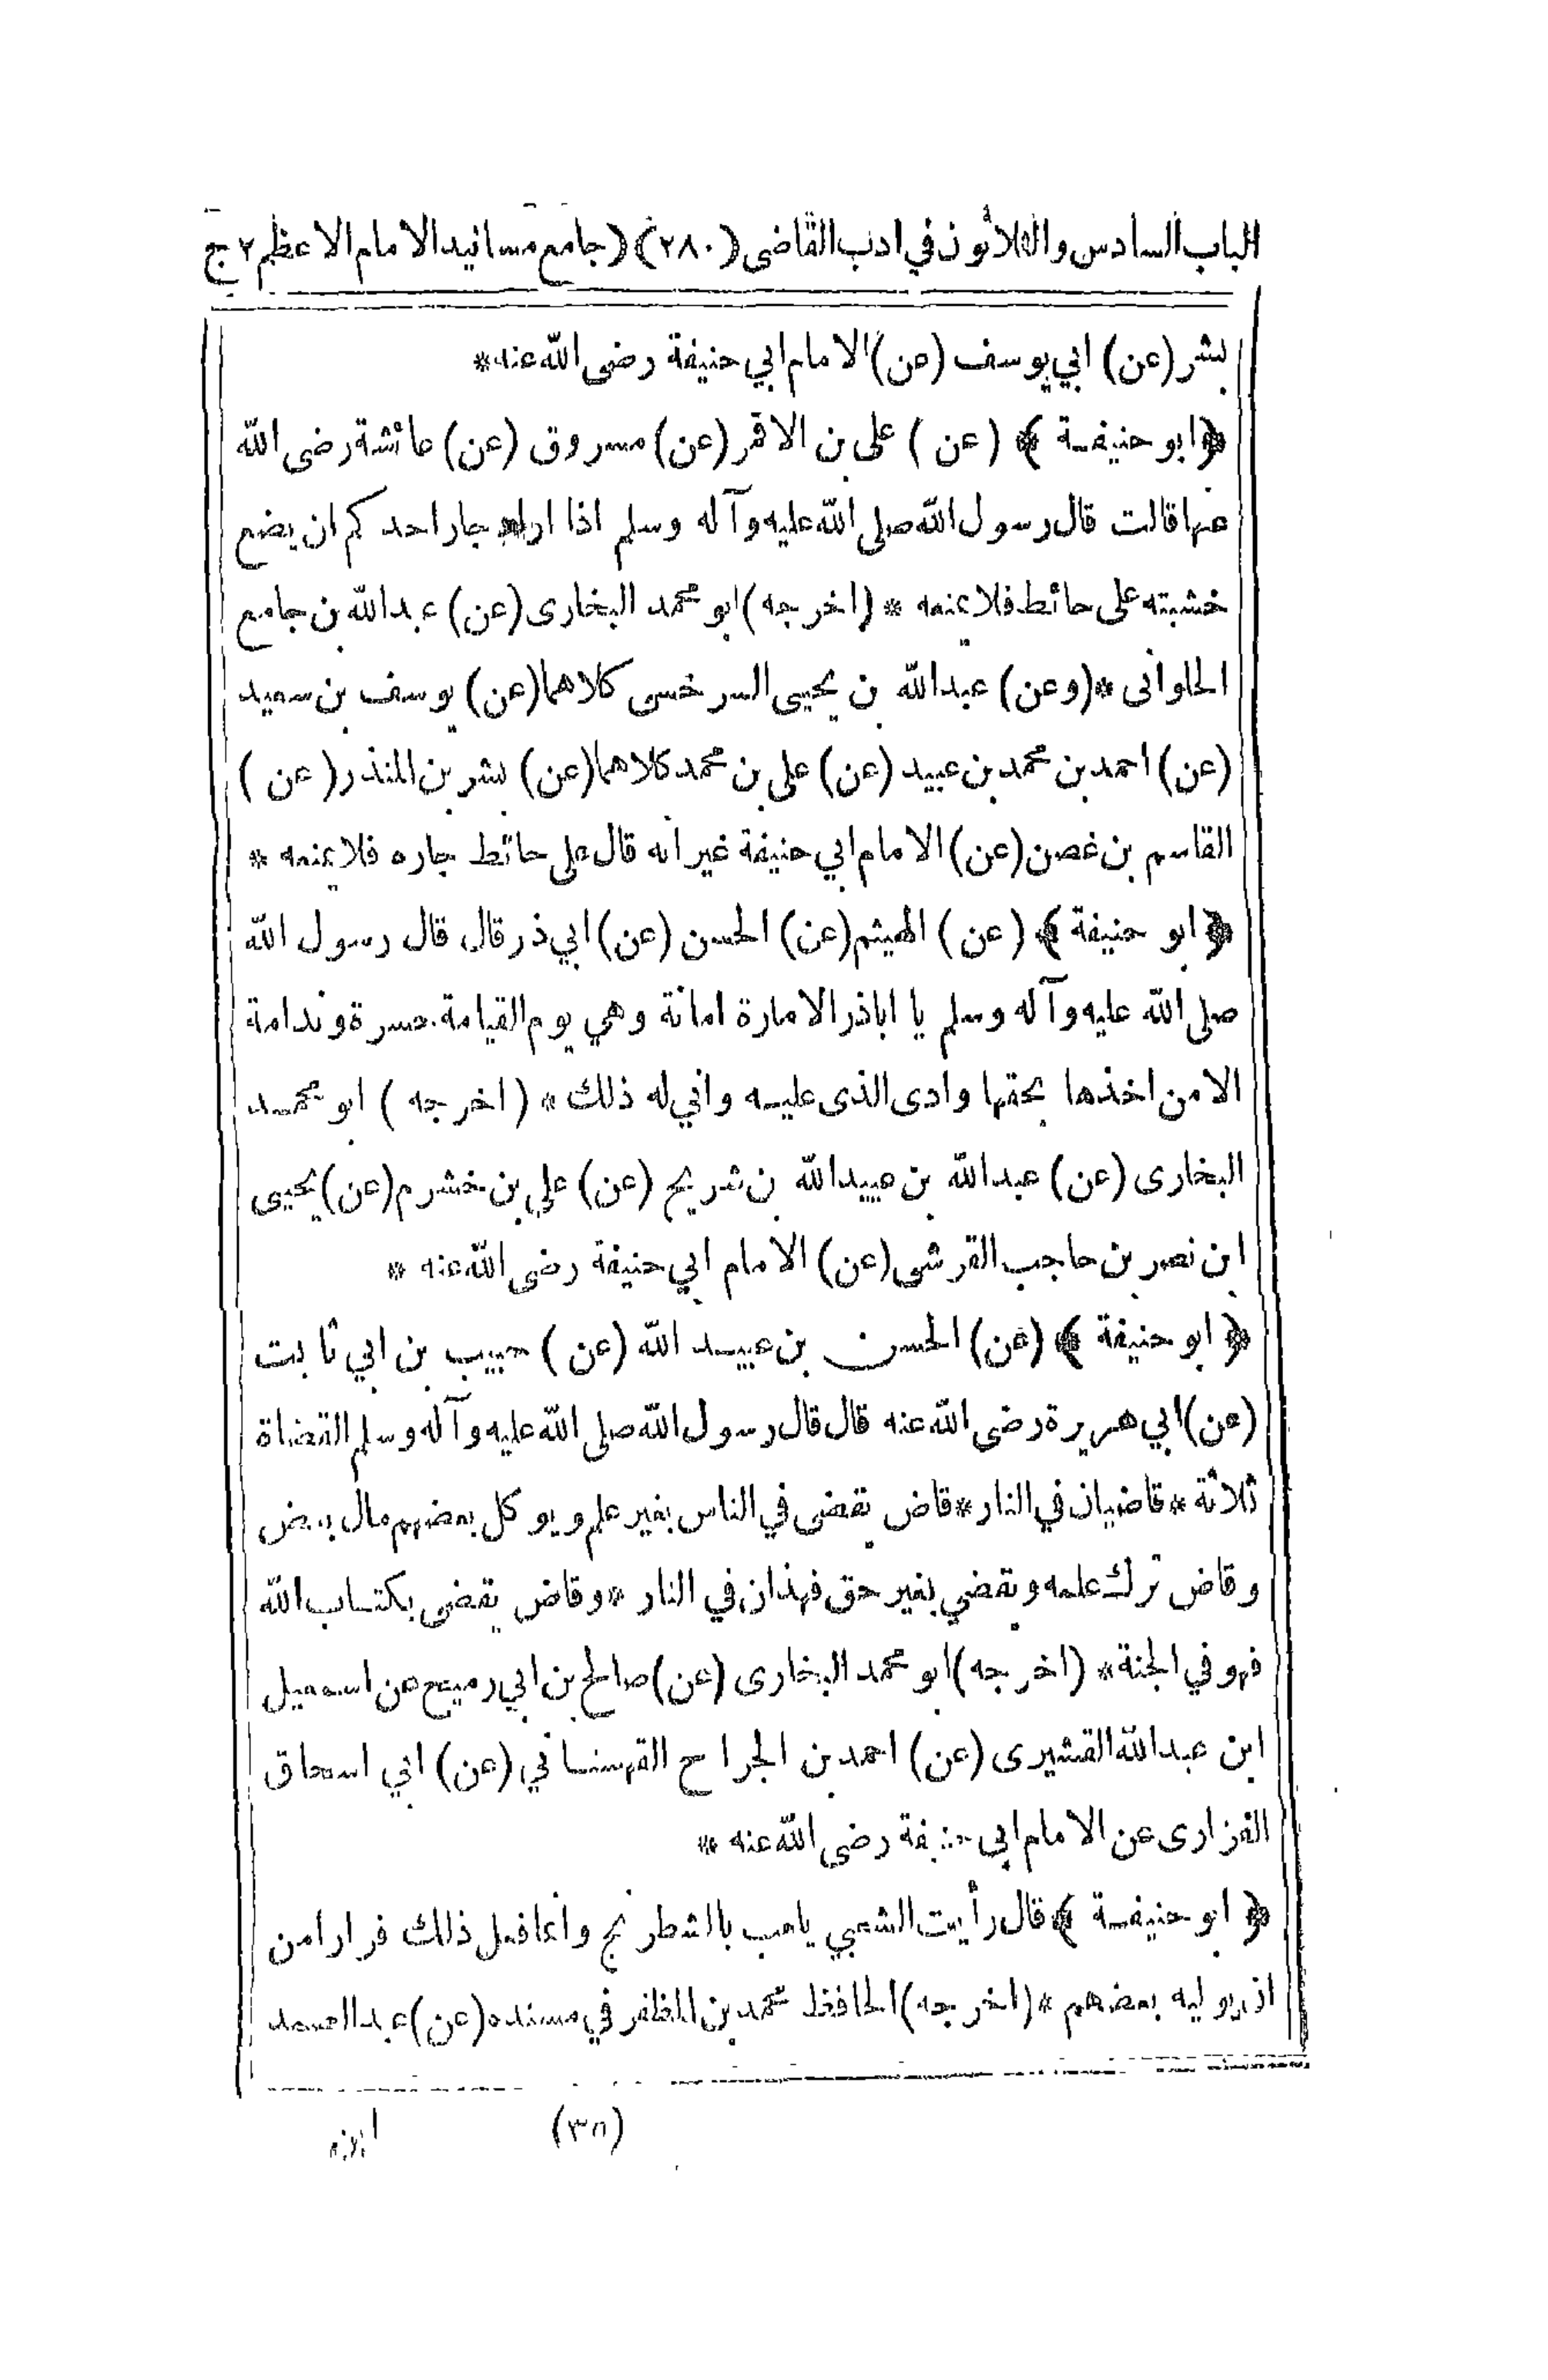 الباب السادس والثلاثون في ادب القاضى (٢٨٠) (جامع مسانيد الامام الاعظم ٢ ج
بشر (عن) ابي يوسف (عن) الامام ابي حنيفة رضى الله عنه*
﴿ابو حنيفة﴾ (عن) على بن الاقمر (عن) مسروق (عن) عائشة رضى الله
عنها قالت قال رسول الله صلى الله عليه وآله وسلم اذا اراد جار احدكم ان يضع
خشبته على حائط فلا يمنعه * (اخرجه) ابو محمد البخارى (عن) عبدالله بن جامع
الحلوانى * (وعن) عبدالله بن يحيى السرخسى كلاهما (عن) يوسف بن سعيد
(عن) احمد بن محمد بن عبيد (عن) على بن محمد كلاهما (عن) بشر بن المنذر (عن)
القاسم بن غصن (عن) الامام ابي حنيفة غير انه قال على حائط جاره فلا يمنعه *
﴿ابو حنيفة﴾ (عن) الهيثم (عن) الحسن (عن) ابي ذر قال قال رسول الله
صلى الله عليه وآله وسلم يا اباذر الامارة امانة وهي يوم القيامة حسرة وندامة
الا من اخذها بحقها وادى الذى عليه واني له ذلك * (اخرجه) ابو محمد
البخارى (عن) عبدالله بن عبيدالله بن شريح (عن) علي بن خشرم (عن) يحيى
ابن نصر بن حاجب القرشى (عن) الامام ابي حنيفة رضى الله عنه *
﴿ابو حنيفة﴾ (عن) الحسن بن عبيد الله (عن) حبيب بن ابي ثابت
(عن) ابي هريرة رضى الله عنه قال قال رسول الله صلى الله عليه وآله وسلم القضاة
ثلاثة * قاضيان في النار * قاض يقضى في الناس بغير علم ويوكل بعضهم مال بعض
وقاض ترك علمه ويقضي بغير حق فهذان في النار * وقاض يقضى بكتاب الله
فهو في الجنة * (اخرجه) ابو محمد البخارى (عن) صالح بن ابي رميح عن اسمعيل
ابن عبدالله القشيرى (عن) احمد بن الجراح القهستاني (عن) ابي اسحاق
الفزارى عن الامام ابي حنيفة رضى الله عنه *
﴿ابو حنيفة﴾ قال رأيت الشعبي يلعب بالشطرنج وانما فعل ذلك فرارا من
ان يوليه بعضهم * (اخرجه) الحافظ محمد بن المظفر في مسنده (عن) عبدالصمد